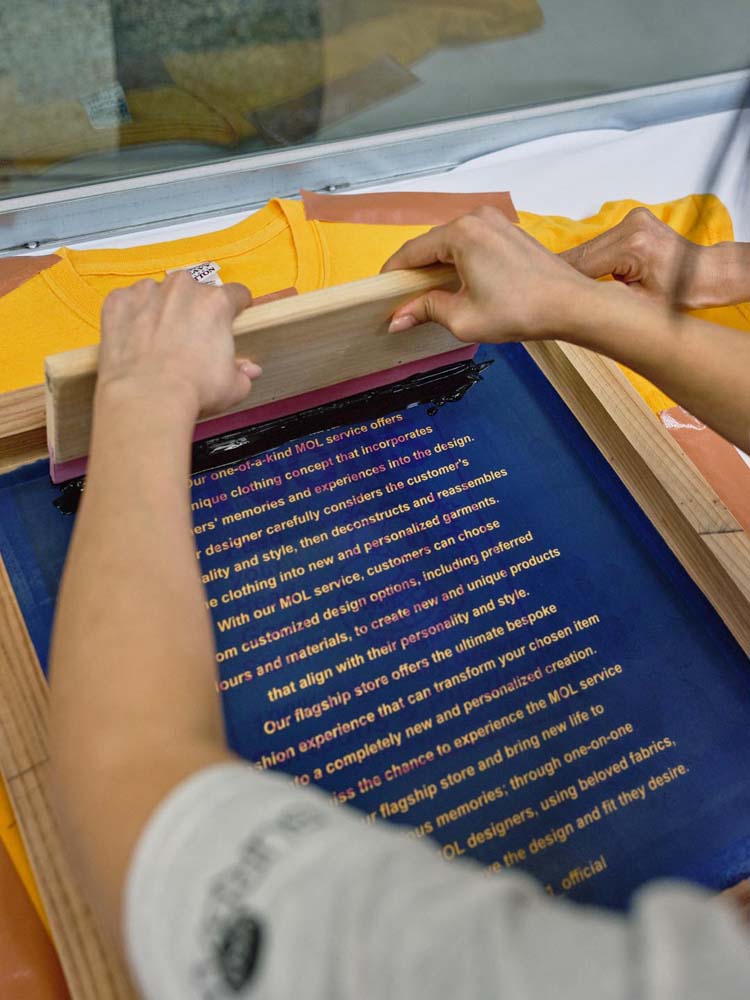 our one-of-a-kind MOL service offers
nique clothing concept that incorporates
ers' memories and experiences into the design.
r designer carefully considers the customer's
ality and style, then deconstructs and reassembles
e clothing into new and personalized garments.
With our MOL service, customers can choose
om customized design options, including preferred
ours and materials, to create new and unique products
that align with their personality and style.
Our flagship store offers the ultimate bespoke
shion experience that can transform your chosen item
to a completely new and personalized creation.
iss the chance to experience the MOL service
ur flagship store and bring new life to
ous memories; through one-on-one
OL designers, using beloved fabrics,
ve the design and fit they desire.
official